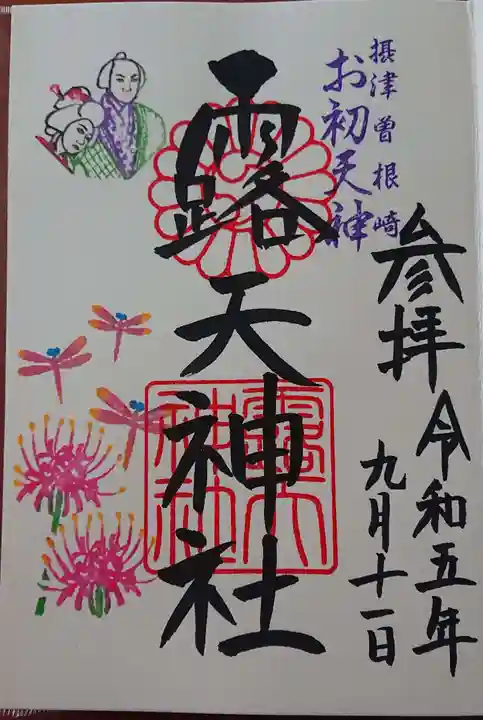 摂津曽根崎
お初天神
参拝
令和五年
九月十一日
露天神社